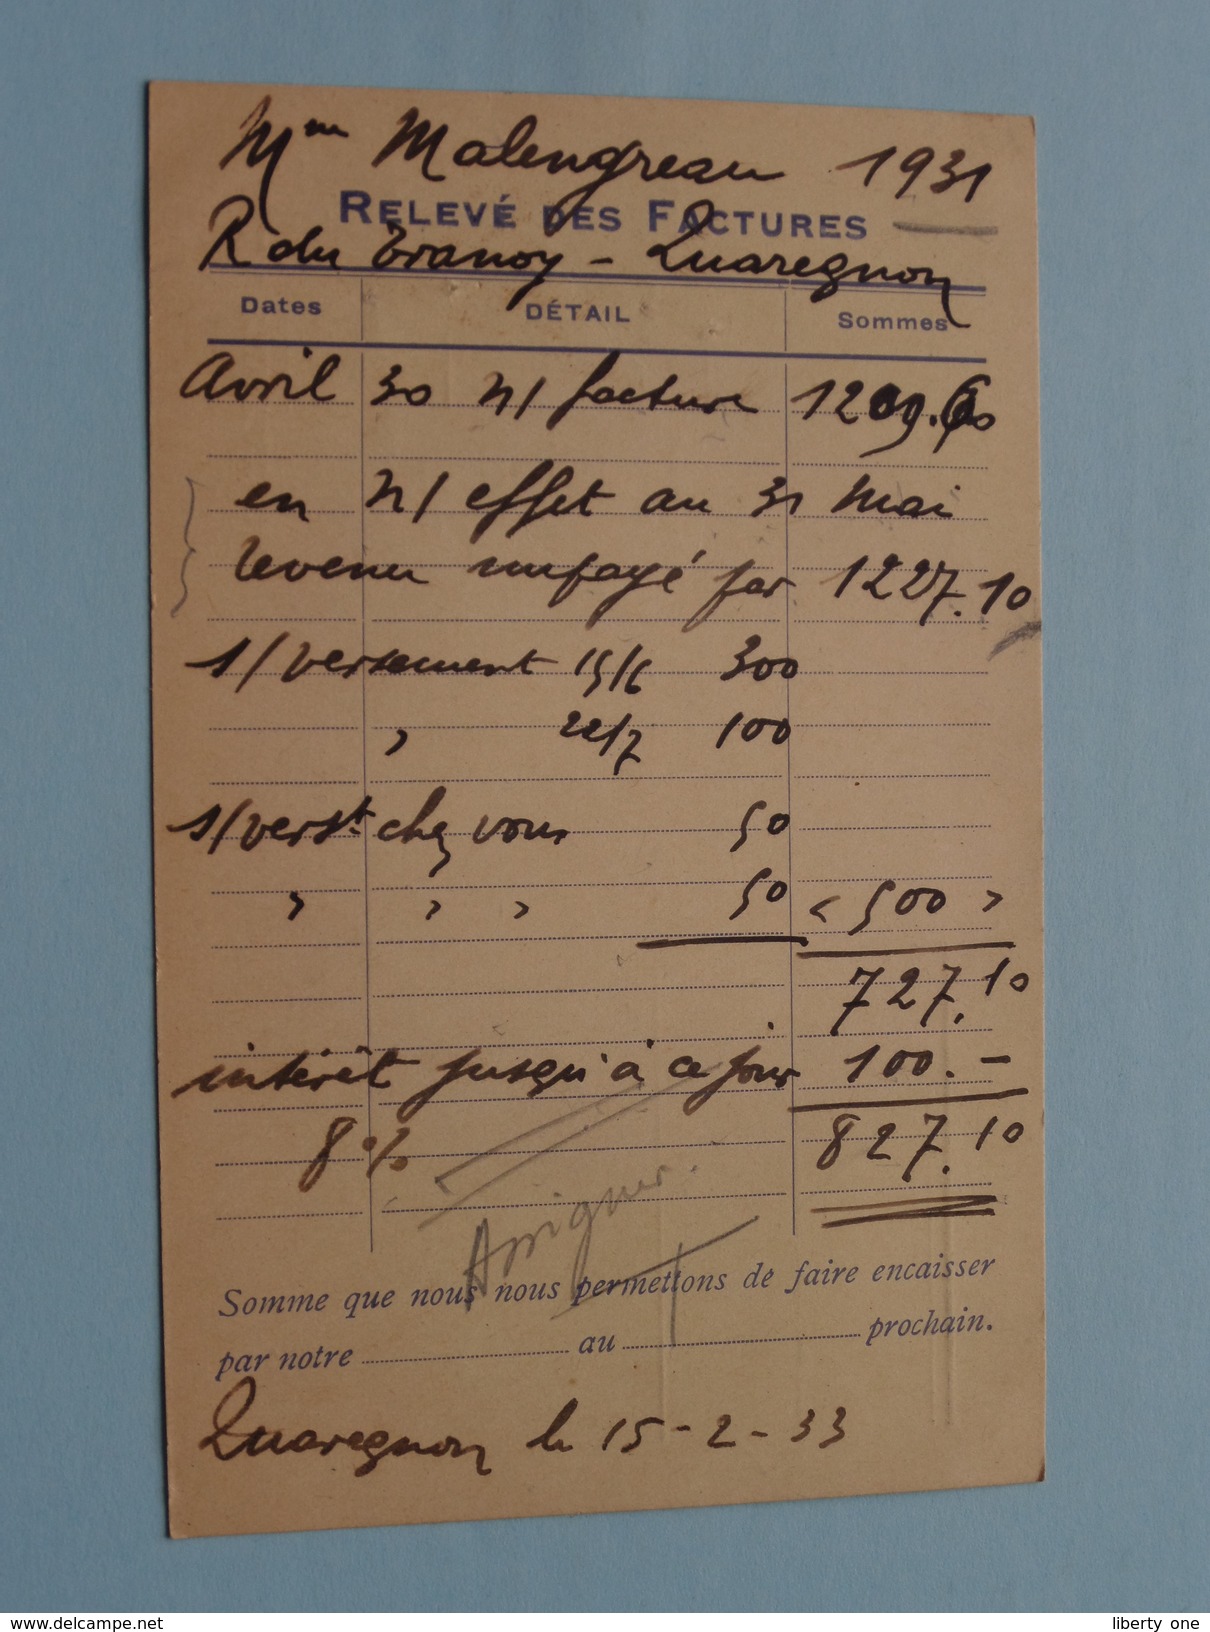 Mme Malengreau 1931
RELEVÉ DES FACTURES
R du Tranoy - Quaregnon
Dates DÉTAIL Sommes
Avril 30 n/ facture 1209.60
en n/ effet au 31 mai
revenu impayé par 1227.10
s/ versement 15/6 300
" 22/7 100
s/ verst. chez vous 50
" " " 50 < 500 >
727.10
intérêt jusqu'à ce jour 100.-
8% 827.10
Assigner.
Somme que nous nous permettons de faire encaisser
par notre au prochain.
Quaregnon le 15-2-33
www.delcampe.net
liberty_one